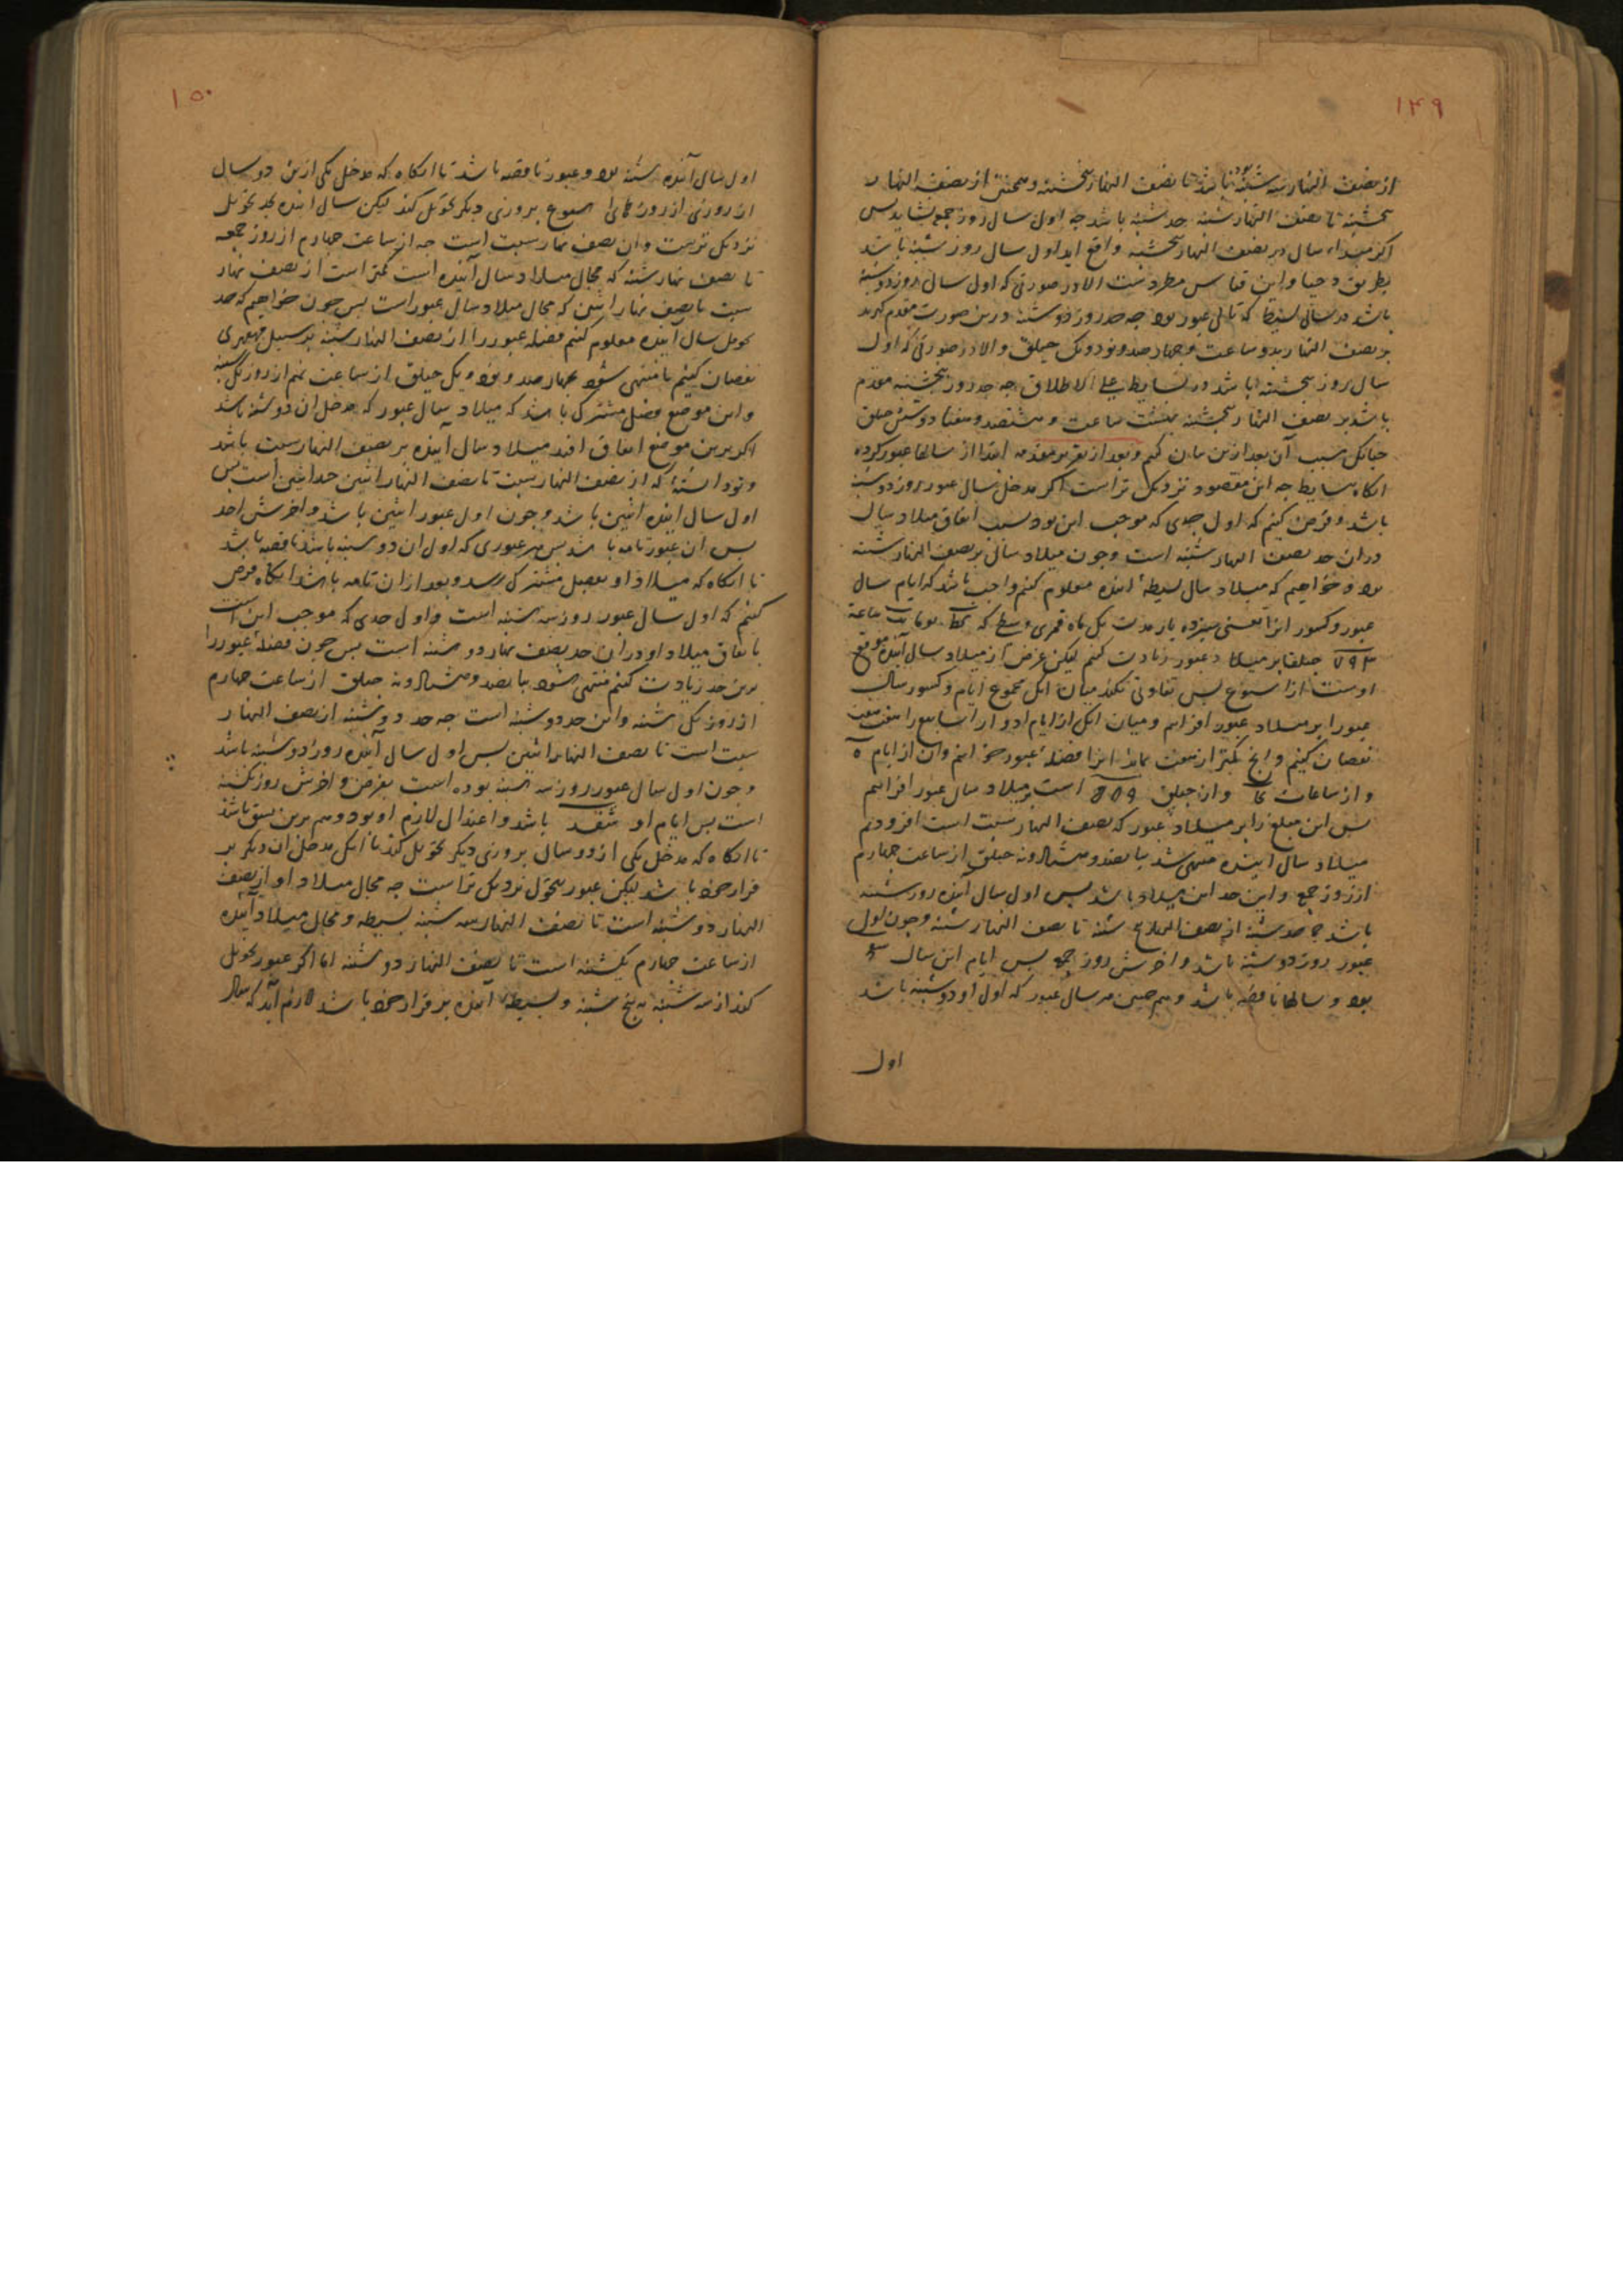 ۱۴۹
از نصف النهار سه شنبه بود تا نصف النهار پنجشنبه و همچنین از نصف النهار
پنجشنبه تا نصف النهار شنبه حد شنبه باشد چه اول سال روز جمعه نشاید پس
اگر مبداء سال بر نصف النهار پنجشنبه واقع اید اول سال روز شنبه باشد
بطریق دحیا و این قیاس مطردست الا در صورتی که اول سال روز دوشنبه
باشد در سالی بسیط که تالی عبور بود چه حد روز دوشنبه درین صورت مقدم گیرند
بر نصف النهار بدو ساعت و چهارصد و نود و یک حیلق و الا در صورتی که اول
سال روز پنجشنبه باشد در بسایط علی الاطلاق چه حد روز پنجشنبه مقدم
باشد بر نصف النهار پنجشنبه بهشت ساعت و ششصد و هفتاد و شش حیلق
چنانک سبب آن بعد ازین بیان کنیم و بعد از تقریر مقدمه ابتدا از سالها عبور کرده
انگاه بسایط چه این مقصود نزدیک تر است اگر مدخل سال عبور روز دوشنبه
باشد و فرض کنیم که اول حدی که موجب این بود بسبب اتفاق میلاد سال
دران حد نصف النهار شنبه است و چون میلاد سالی بر نصف النهار شنبه
بود و خواهیم که میلاد سال بسیطه آینده معلوم کنیم واجب باشد که ایام سال
عبور و کسور انرا یعنی سیزده بار مدت یک ماه قمری وسط که کط یوما یب ساعة
۷۹۳ حیلقا بر میلاد عبور زیادت کنیم لیکن غرض از میلاد سال آینده موقع
اوست از اسبوع پس تفاوتی نکند میان انک مجموع ایام و کسور سال
عبور را بر میلاد عبور افزاییم و میان انک از ایام ادوار اسابیع را هفت هفت
نقصان کنیم و انچ کمتر از هفت بماند انرا فضله عبور خوانیم وان از ایام ه
و از ساعات کا و از حیلق ۵۸۹ است بر میلاد سال عبور افزاییم
پس این مبلغ را بر میلاد عبور که نصف النهار سبت است افزودیم
میلاد سال آینده منتهی شد بپانصد و هشتاد و نه حیلق از ساعت چهارم
از روز جمعه و این حد این میلاد باشد پس اول سال آینده روز شنبه
باشد چه حد شنبه از نصف النهار پنج شنبه تا نصف النهار شنبه و چون اول
عبور روز دوشنبه باشد و اخرش روز جمعه پس ایام این سال
بود و سالها ناقصه باشد و همچنین هر سال عبور که اول او دوشنبه باشد
اول
۱۵۰
اول سال آینده شنبه بود و عبور ناقصه باشد تا انگاه که مدخل یکی ازین دو سال
از روزی از روزهای اسبوع بروزی دیگر تحویل کند لیکن سال آینده بحد تحویل
نزدیک ترست وان نصف نهار سبت است چه از ساعت چهارم از روز جمعه
تا نصف نهار شنبه که مجال میلاد سال آینده است کمتر است از نصف نهار
سبت تا نصف نهار اثنین که مجال میلاد سال عبور است پس چون خواهیم که حد
تحویل سال آینده معلوم کنیم فضله عبور را از نصف النهار شنبه بر سبیل قهقهری
نقصان کنیم تا منتهی شود بچهارصد و نود و یک حیلق از ساعت نهم از روز یک شنبه
و این موضع فصل مشترک باشد که میلاد سال عبور که مدخل ان دوشنبه باشد
اگر برین موضع اتفاق افتد میلاد سال آینده بر نصف النهار سبت باشد
و تو دانسته که از نصف النهار سبت تا نصف النهار اثنین حد اثنین است پس
اول سال آینده اثنین باشد و چون اول عبور اثنین باشد و اخرش احد
پس ان عبور تامه باشد پس هر عبوری که اول ان دوشنبه باشد ناقصه باشد
تا انگاه که میلاد او بفصل مشترک رسد و بعد ازان تامه باشد انگاه فرض
کنیم که اول سال عبور روز سه شنبه است و اول حدی که موجب این است
باتفاق میلاد او دران حد نصف نهار دوشنبه است پس چون فضله عبور را
برین حد زیادت کنیم منتهی شود بپانصد و هشتاد و نه حیلق از ساعت چهارم
از روز یک شنبه و این حد دوشنبه است چه حد دوشنبه از نصف النهار
سبت است تا نصف النهار اثنین پس اول سال آینده روز دوشنبه باشد
و چون اول سال عبور روز سه شنبه بوده است بفرض و اخرش روز یکشنبه
است پس ایام او شفد باشد و اعتدال لازم او بود و هم برین نسق باشد
تا انگاه که مدخل یکی از دو سال بروزی دیگر تحویل کند با انک مدخل ان دیگر بر
قرار خود باشد لیکن عبور بتحول نزدیک تر است چه مجال میلاد او از نصف
النهار دوشنبه است تا نصف النهار سه شنبه بسیطه و مجال میلاد آینده
از ساعت چهارم یکشنبه است تا نصف النهار دوشنبه اما اگر عبور تحویل
کند از سه شنبه به پنج شنبه و بسیطه آینده بر قرار خود باشد لازم آید که سال